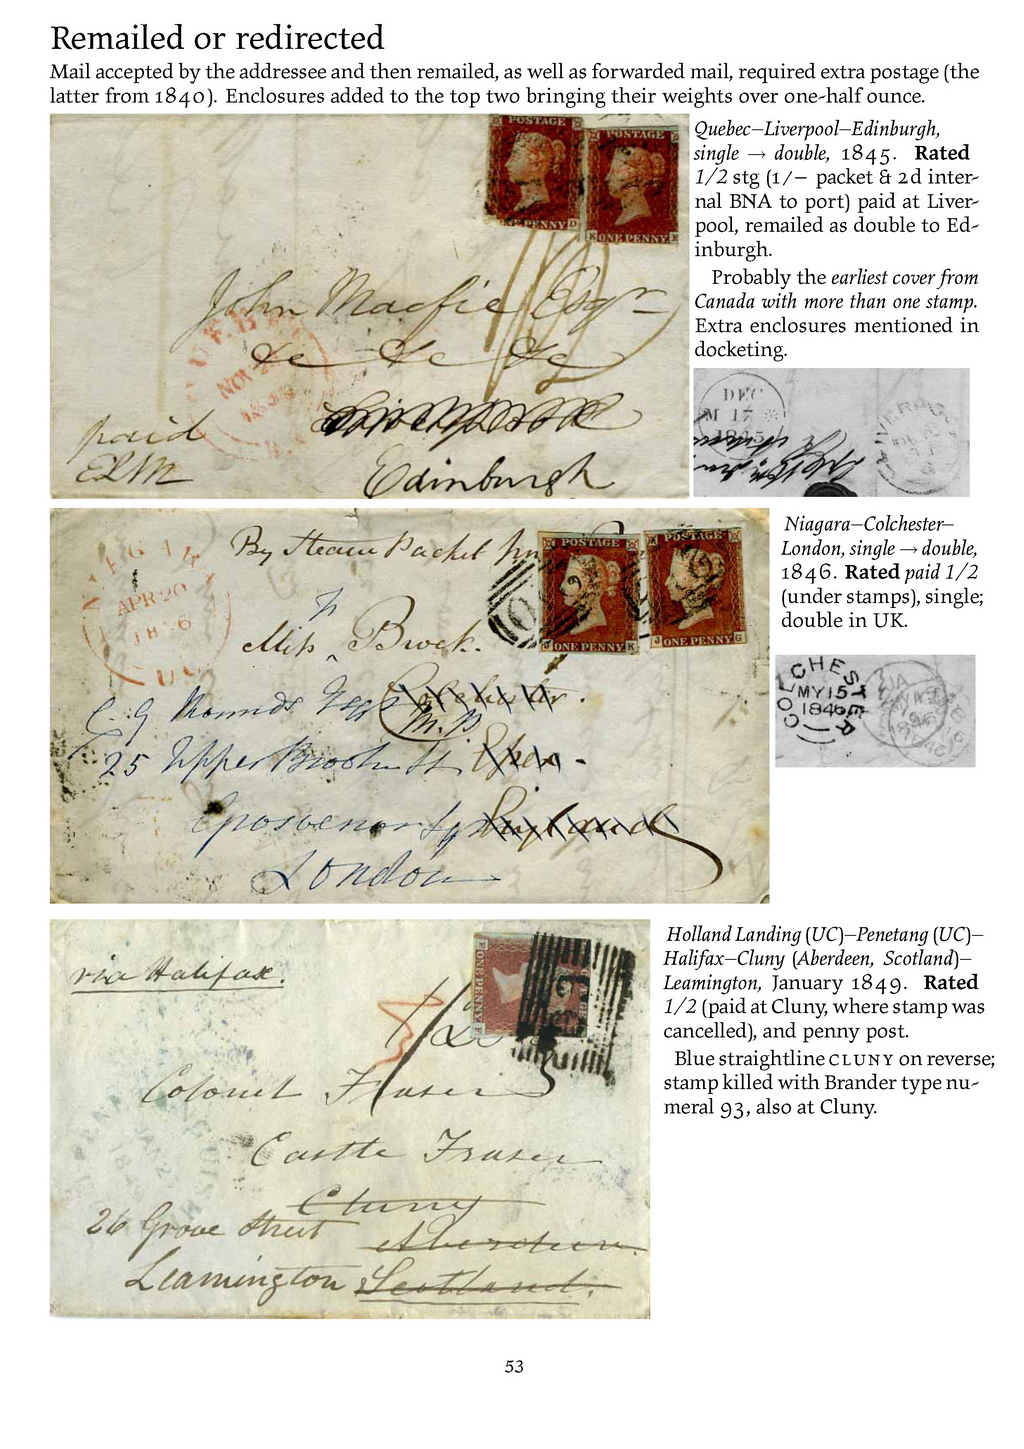 Remailed or redirected
Mail accepted by the addressee and then remailed, as well as forwarded mail, required extra postage (the
latter from 1840). Enclosures added to the top two bringing their weights over one-half ounce.
POSTAGE
POSTAGE
ONE PENNY D
K ONE PENNY E
John Macfie Esqr
&c &c &c
paid
ELM
Edinburgh
Quebec–Liverpool–Edinburgh,
single → double, 1845. Rated
1/2 stg (1/– packet & 2d inter-
nal BNA to port) paid at Liver-
pool, remailed as double to Ed-
inburgh.
Probably the earliest cover from
Canada with more than one stamp.
Extra enclosures mentioned in
docketing.
DEC
M 17
1845
By Steam Packet
POSTAGE
POSTAGE
J ONE PENNY K
J ONE PENNY G
APR 20
UC
Miss Brock.
C G Rounds Esqr
M.P
25 Upper Brook St
Grosvenor Sq
London
Niagara–Colchester–
London, single → double,
1846. Rated paid 1/2
(under stamps), single;
double in UK.
COLCHESTER
MY 15
1846
via Halifax.
1/2
ONE PENNY
93
Colonel Fraser
Castle Fraser
Cluny
26 Grove Street
Aberdeen.
Leamington Scotland.
Holland Landing (UC)–Penetang (UC)–
Halifax–Cluny (Aberdeen, Scotland)–
Leamington, January 1849. Rated
1/2 (paid at Cluny, where stamp was
cancelled), and penny post.
Blue straightline CLUNY on reverse;
stamp killed with Brander type nu-
meral 93, also at Cluny.
53